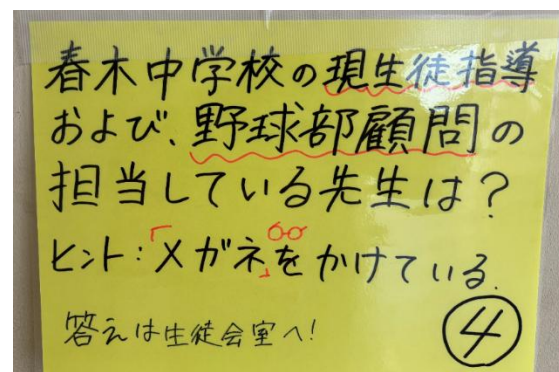 春木中学校の現生徒指導
および、野球部顧問の
担当している先生は？
ヒント：「メガネ」をかけている.
答えは生徒会室へ！
④